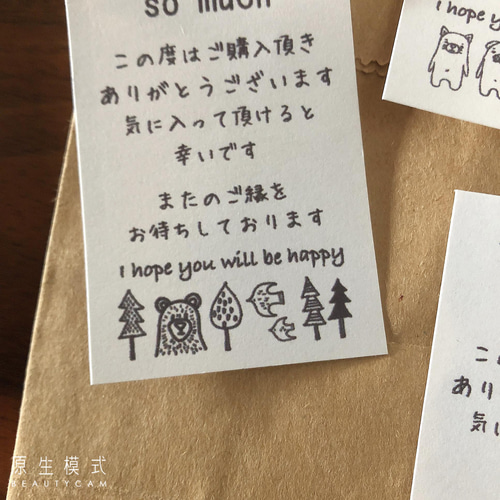 so much
この度はご購入頂き
ありがとうございます
気に入って頂けると
幸いです
またのご縁を
お待ちしております
I hope you will be happy
I hope y
こ
あり
気に
原生模式
BEAUTYCAM